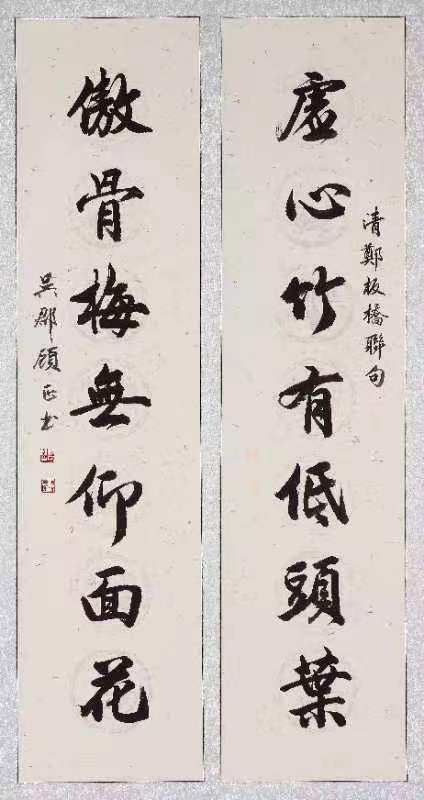 虛心竹有低頭葉
清鄭板橋聯句
傲骨梅無仰面花
吳郡顧正書